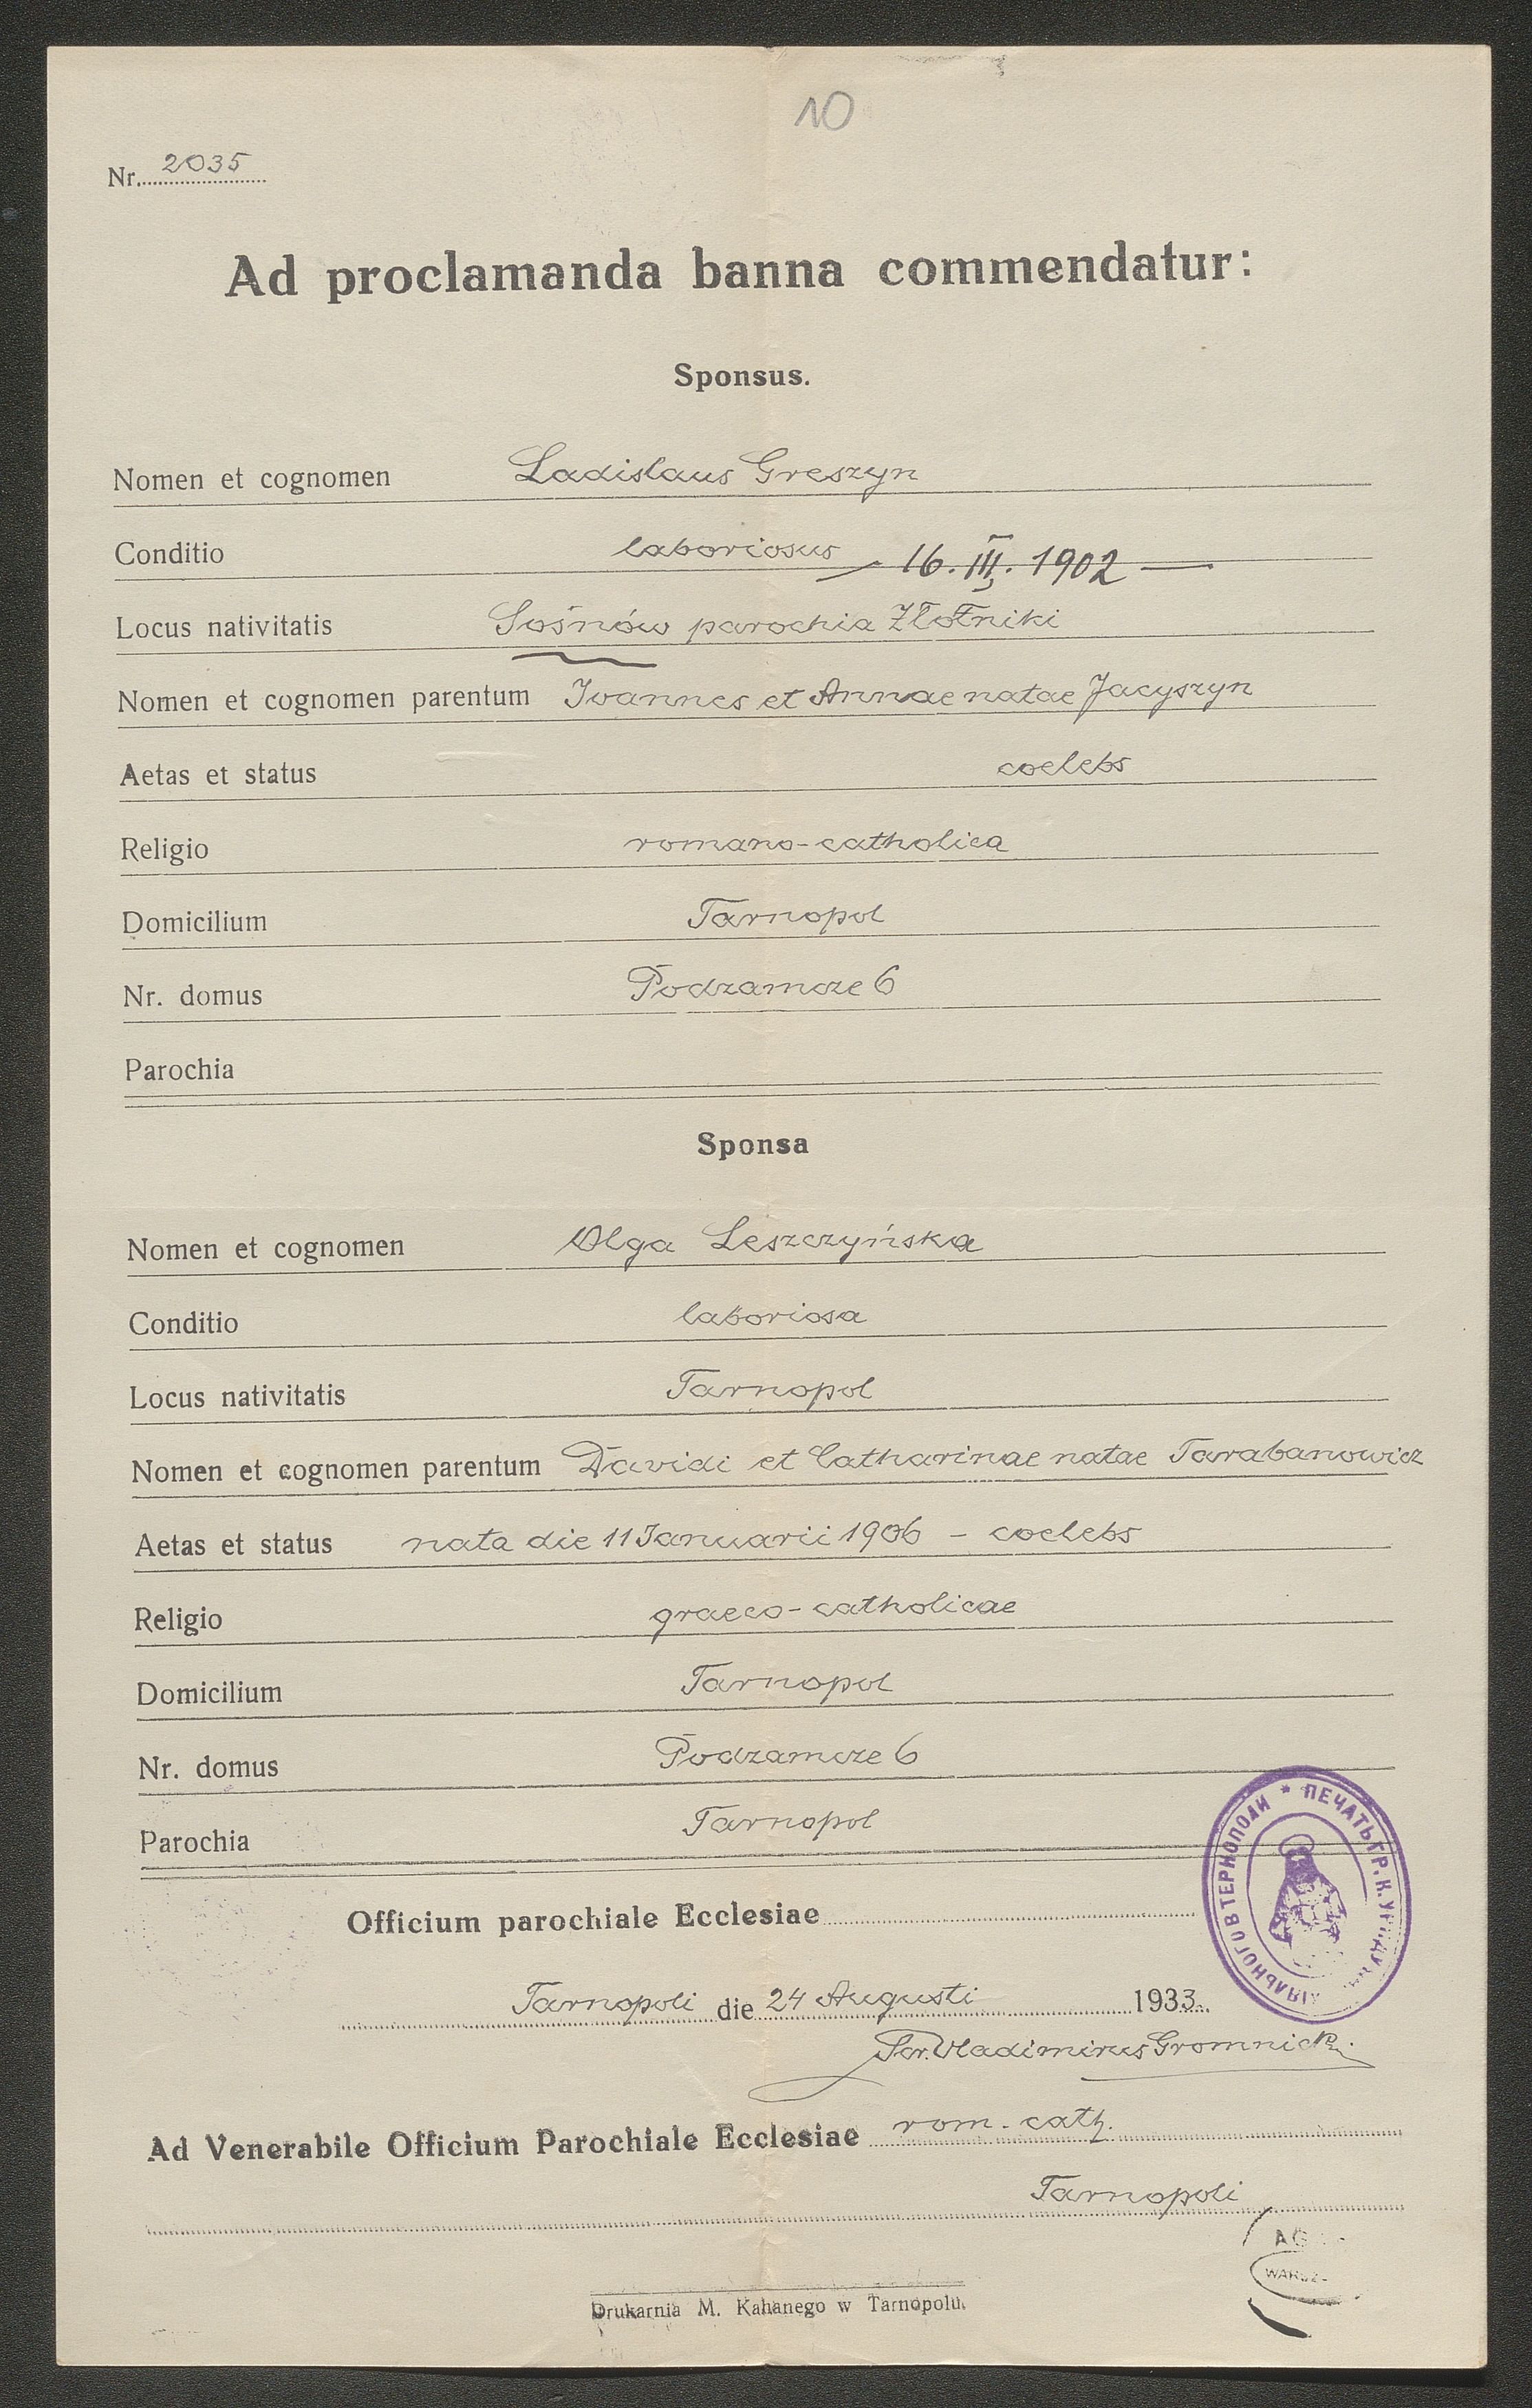 10
Nr. 2035
Ad proclamanda banna commendatur:
Sponsus.
Nomen et cognomen Ladislaus Greszyn
Conditio laboriosus — 16. III. 1902 —
Locus nativitatis Sośnów parochia Złotniki
Nomen et cognomen parentum Ioannes et Annae natae Jacyszyn
Aetas et status coelebs
Religio romano-catholica
Domicilium Tarnopol
Nr. domus Podzamcze 6
Parochia
Sponsa
Nomen et cognomen Olga Leszczyńska
Conditio laboriosa
Locus nativitatis Tarnopol
Nomen et cognomen parentum Davidi et Catharinae natae Tarabanowicz
Aetas et status nata die 11 Januarii 1906 - coelebs
Religio graeco-catholicae
Domicilium Tarnopol
Nr. domus Podzamcze 6
Parochia Tarnopol
* ПЕЧАТЬ ГР. К. В ТЕРНОПОЛИ
Officium parochiale Ecclesiae
Tarnopoli die 24 Augusti 1933.
Vladimirus Gromnicki
Ad Venerabile Officium Parochiale Ecclesiae rom.-cath.
Tarnopoli
Drukarnia M. Kahanego w Tarnopolu.